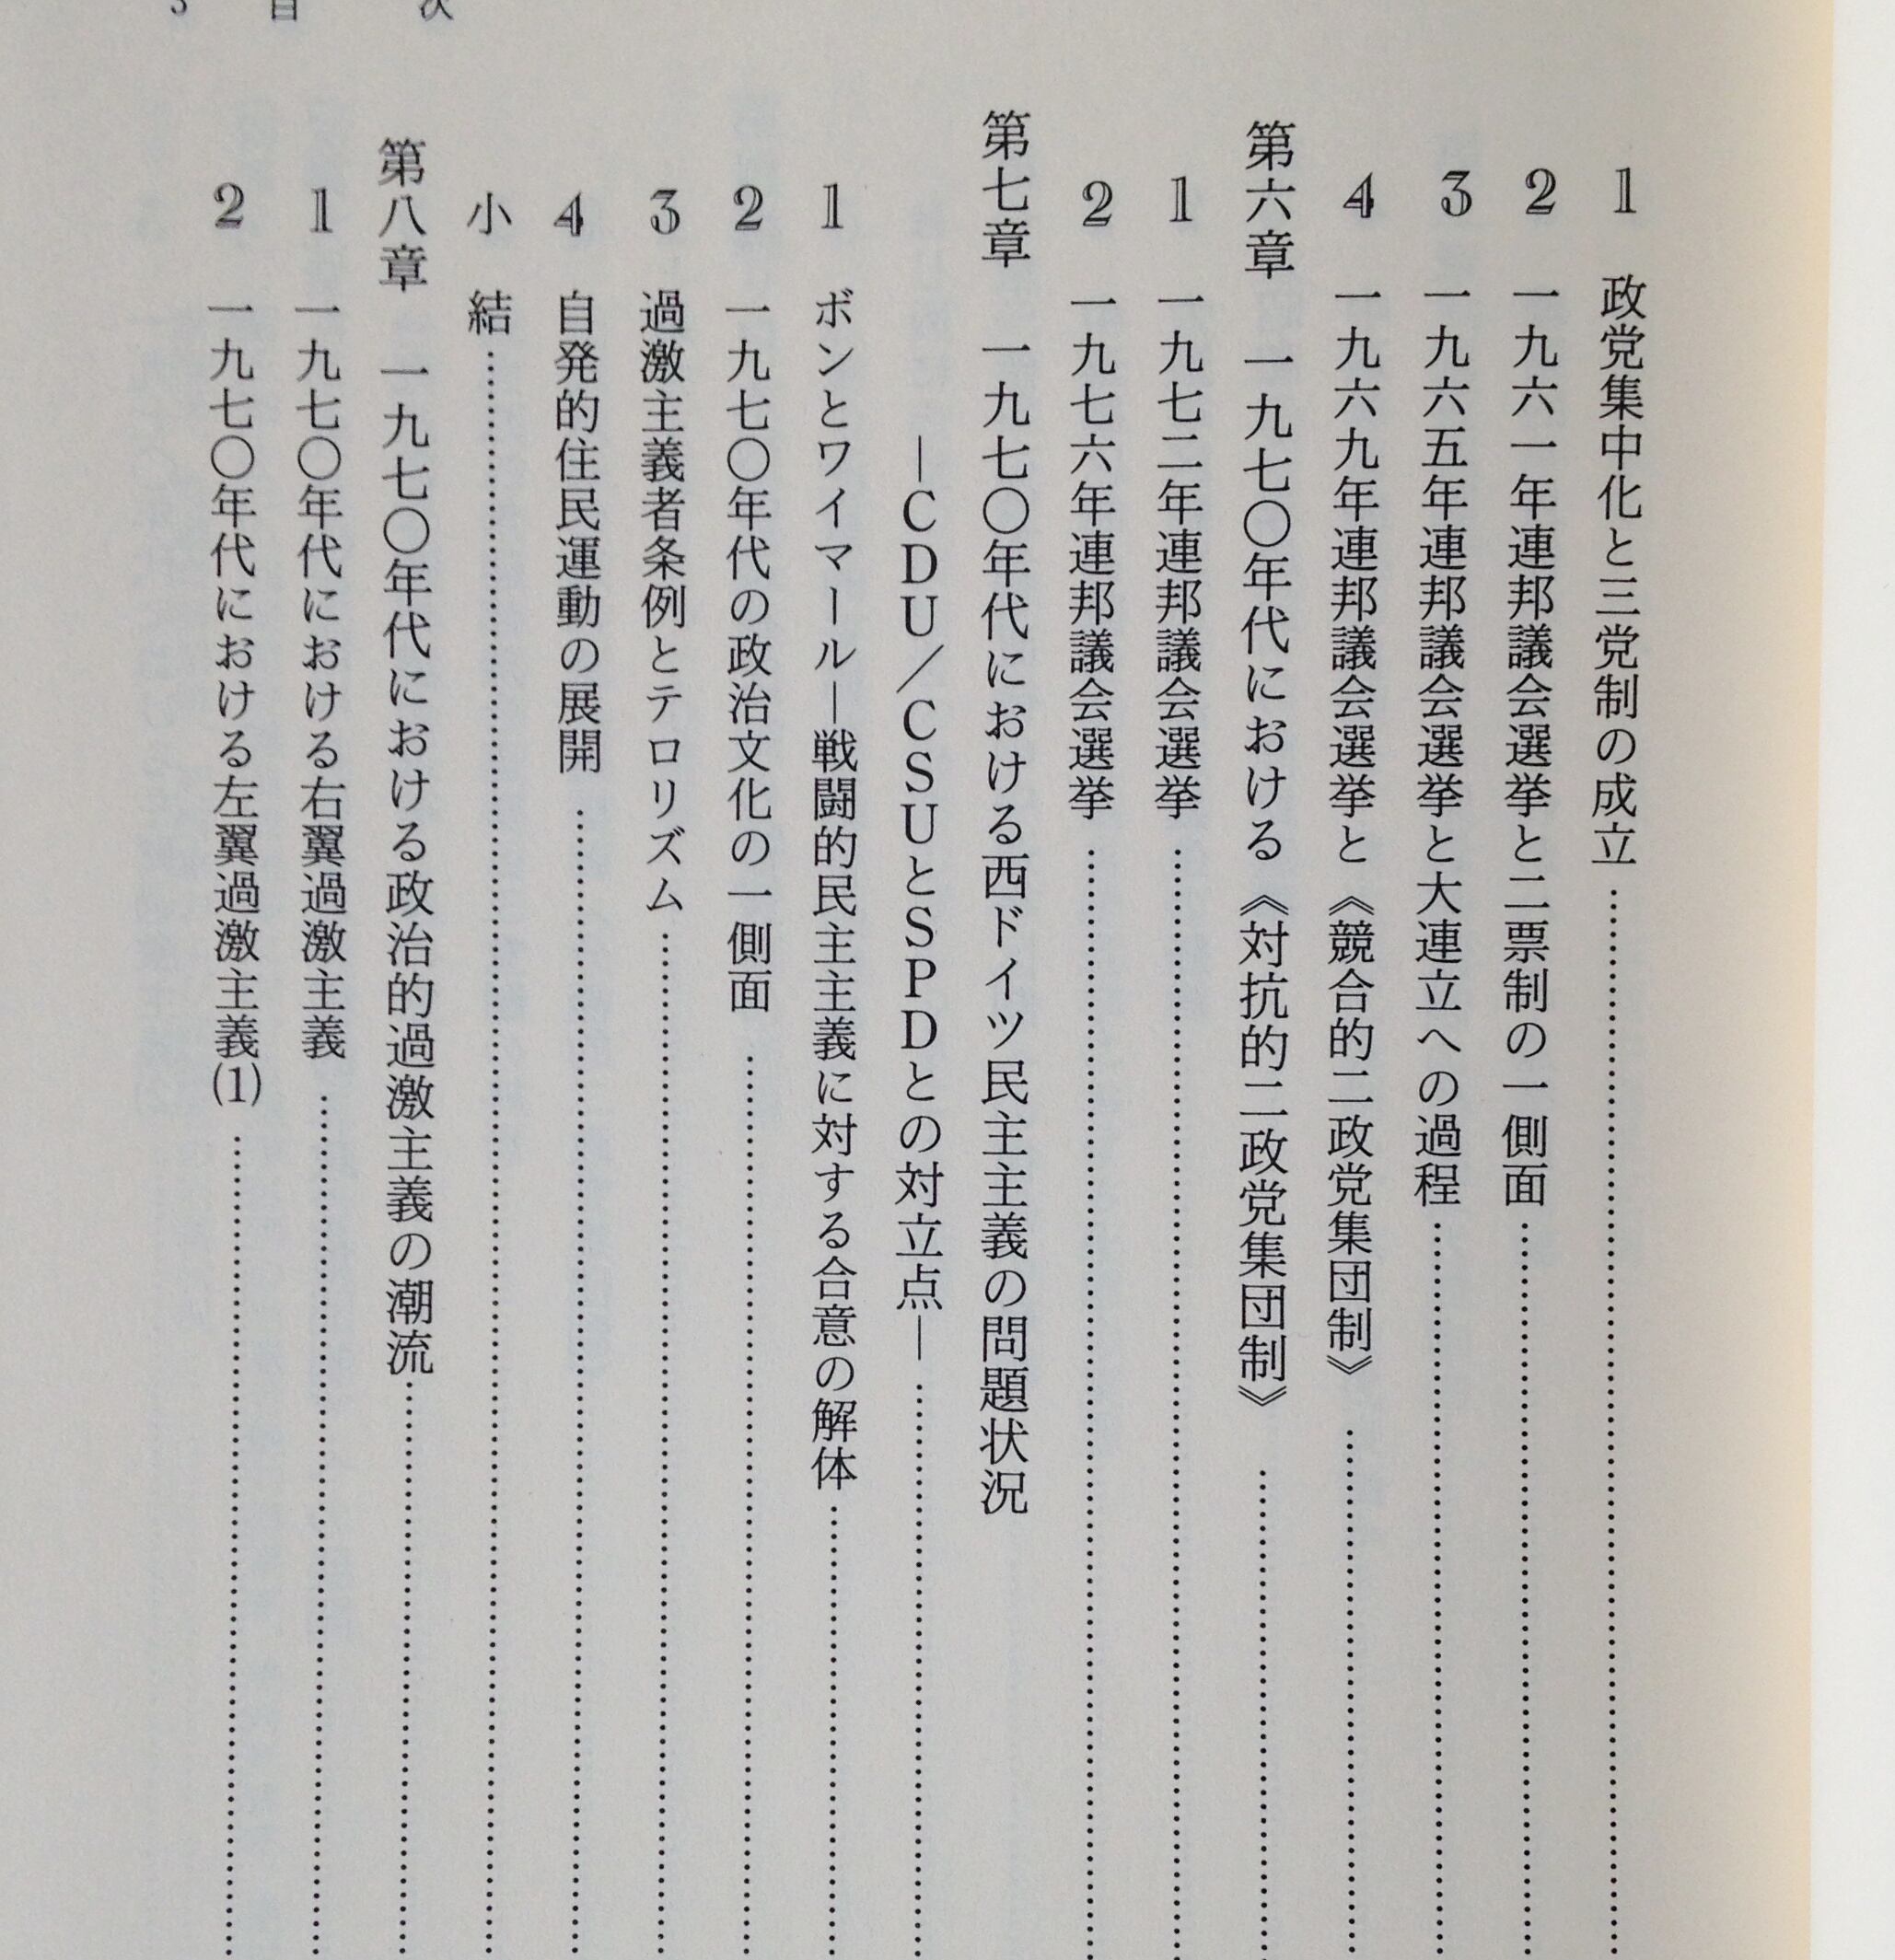 1 政党集中化と三党制の成立
2 一九六一年連邦議会選挙と二票制の一側面
3 一九六五年連邦議会選挙と大連立への過程
4 一九六九年連邦議会選挙と《競合的二政党集団制》
第六章 一九七〇年代における《対抗的二政党集団制》
1 一九七二年連邦議会選挙
2 一九七六年連邦議会選挙
第七章 一九七〇年代における西ドイツ民主主義の問題状況
―CDU/CSUとSPDとの対立点―
1 ボンとワイマール―戦闘的民主主義に対する合意の解体
2 一九七〇年代の政治文化の一側面
3 過激主義者条例とテロリズム
4 自発的住民運動の展開
小 結
第八章 一九七〇年代における政治的過激主義の潮流
1 一九七〇年代における右翼過激主義
2 一九七〇年代における左翼過激主義(1)
目 次